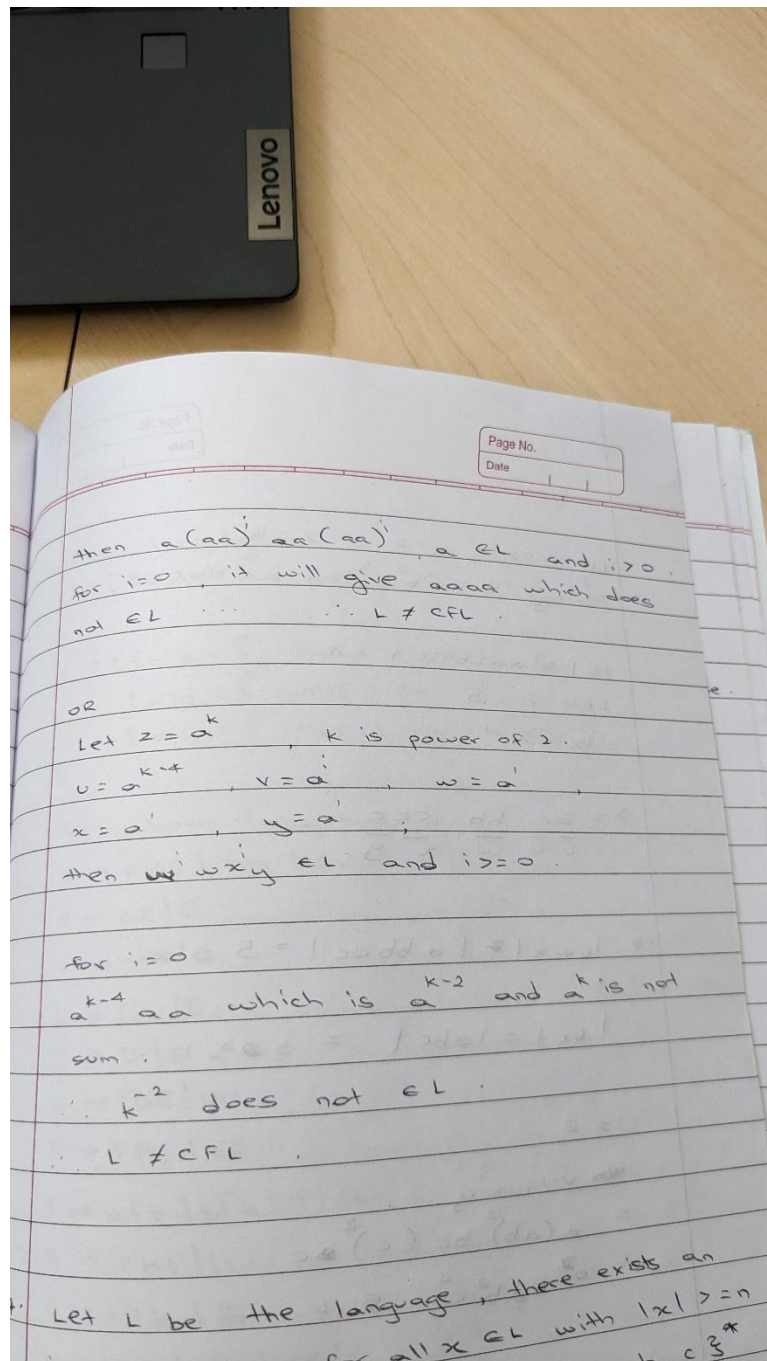 Lenovo
Page No.
Date
then a(aa)^i aa(aa)^i, a ∈L and i>0.
for i=0, it will give aaaa which does
not ∈L ... ∴ L ≠ CFL.
e.
OR
Let z = a^k, k is power of 2.
u = a^k-4, v = a^i, w = a^1,
x = a^1, y = a^1;
then wx^iy ∈L and i>=0.
for i=0
a^k-4 aa which is a^k-2 and a^k is not
sum.
∴ k^-2 does not ∈L.
∴ L ≠ CFL.
Let L be the language, there exists an
all x ∈L with |x| >=n
c}*